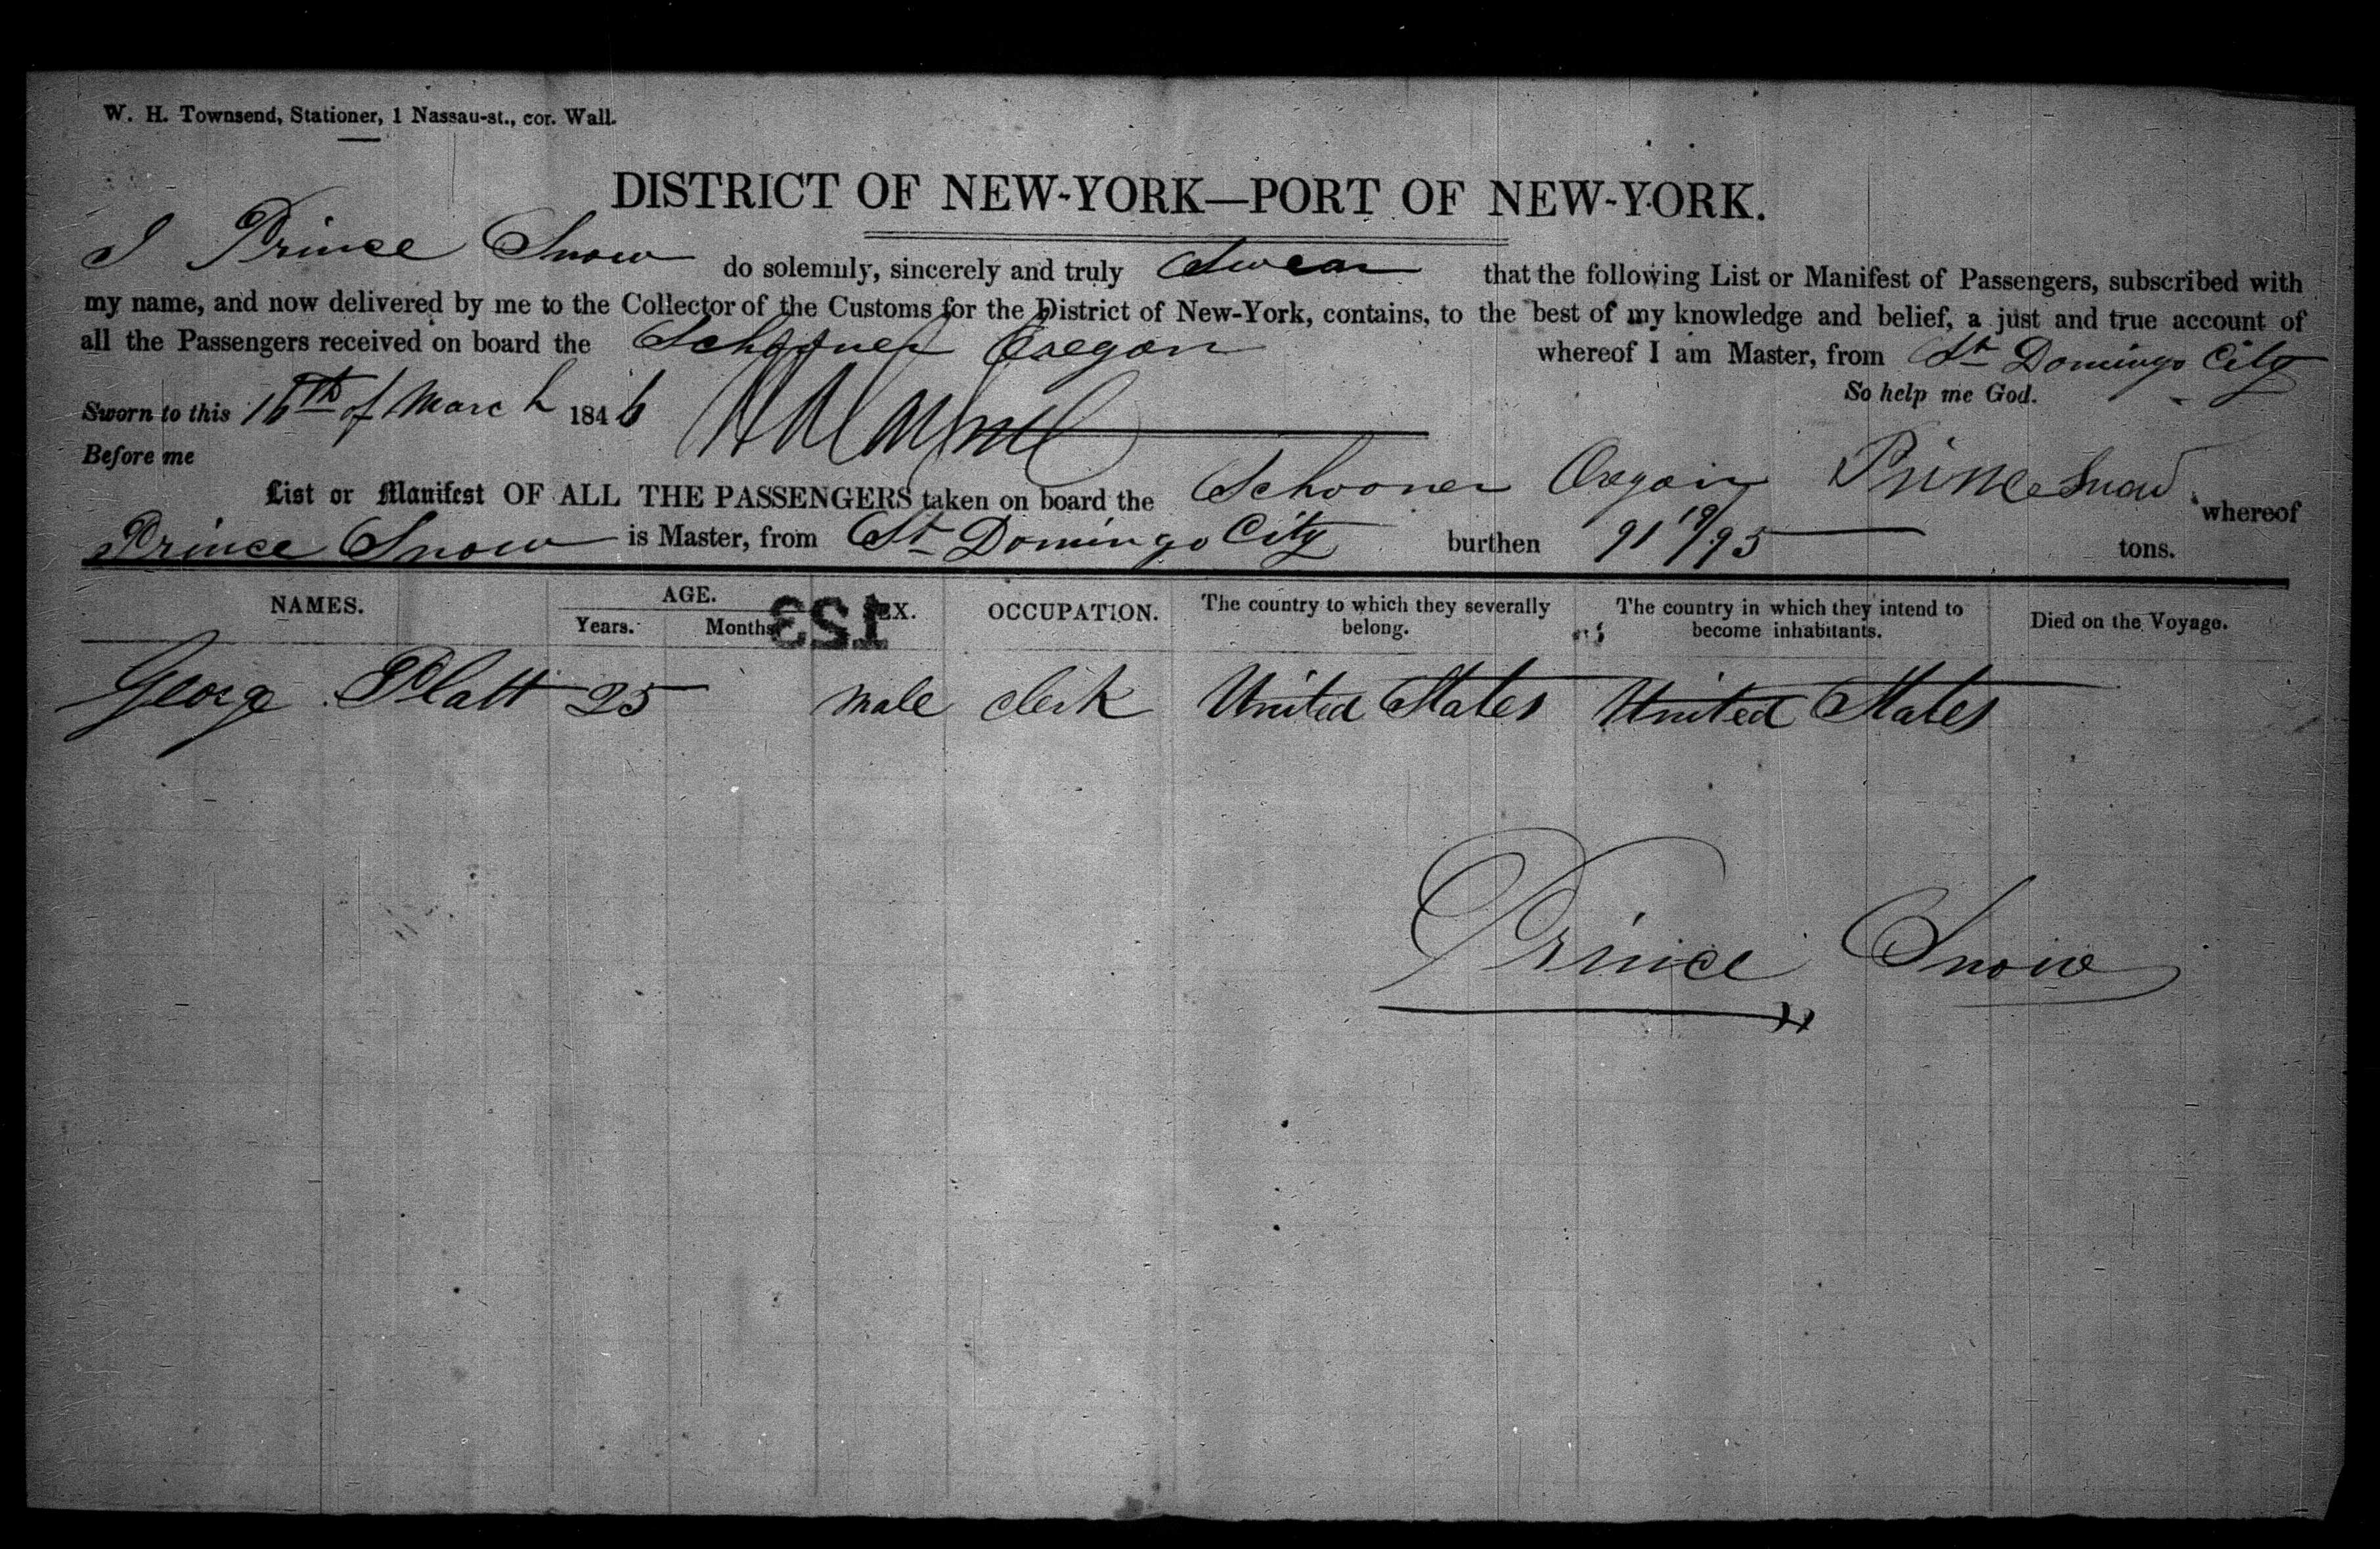 W. H. Townsend, Stationer, 1 Nassau-st., cor. Wall.
DISTRICT OF NEW-YORK—PORT OF NEW-YORK.
I Prince Snow do solemnly, sincerely and truly Swear that the following List or Manifest of Passengers, subscribed with
my name, and now delivered by me to the Collector of the Customs for the District of New-York, contains, to the best of my knowledge and belief, a just and true account of
all the Passengers received on board the Schooner Oregon whereof I am Master, from St Domingo City
So help me God.
Sworn to this 16th of March 1846
Before me
Prince Snow
List or Manifest OF ALL THE PASSENGERS taken on board the Schooner Oregon whereof
Prince Snow is Master, from St Domingo City burthen 91 19/95 tons.
NAMES. AGE. SEX. OCCUPATION. The country to which they severally belong. The country in which they intend to become inhabitants. Died on the Voyage.
Years. Months
123
George Platt 25 male clerk United States United States
Prince Snow